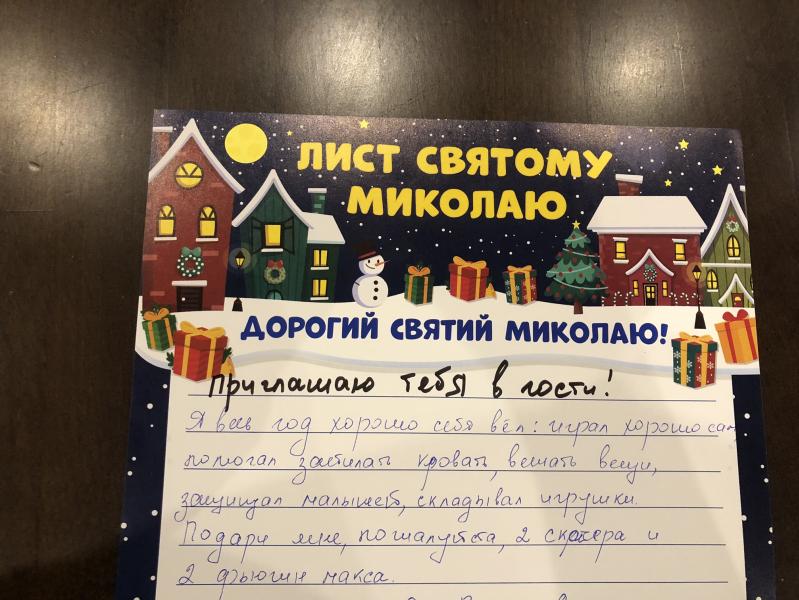 ЛИСТ СВЯТОМУ
МИКОЛАЮ
ДОРОГИЙ СВЯТИЙ МИКОЛАЮ!
Приглашаю тебя в гости!
Я весь год хорошо себя вёл: играл хорошо сам
помогал застилать кровать, вешать вещи,
защищал малышей, складывал игрушки.
Подари мне, пожалуйста, 2 скутера и
2 фьюжн макса.